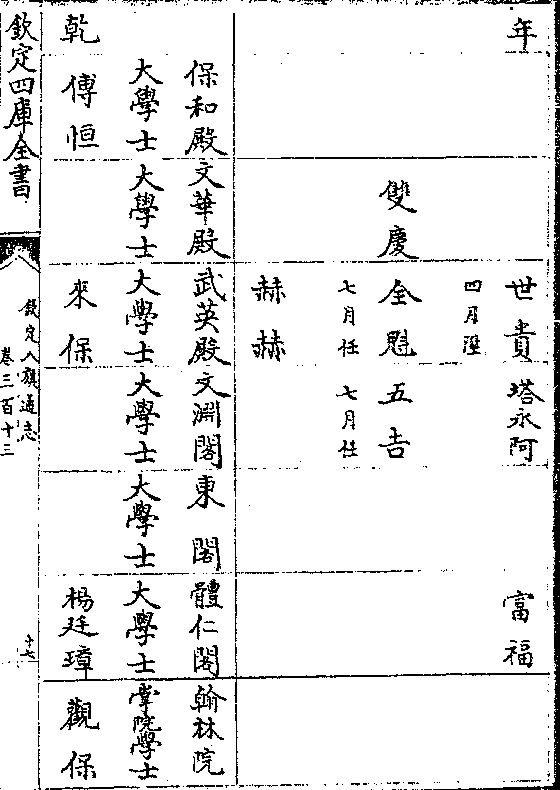 年
世貴
四月陞
塔永阿
富福
雙慶
全魁
七月任
五吉
七月任
赫赫
保和殿
大學士
文華殿
大學士
武英殿
大學士
文淵閣
大學士
東閣
大學士
體仁閣
大學士
翰林院
掌院學士
乾
傅恒
來保
楊廷璋
觀保
欽定四庫全書
欽定八旗通志
卷三百十三
十七